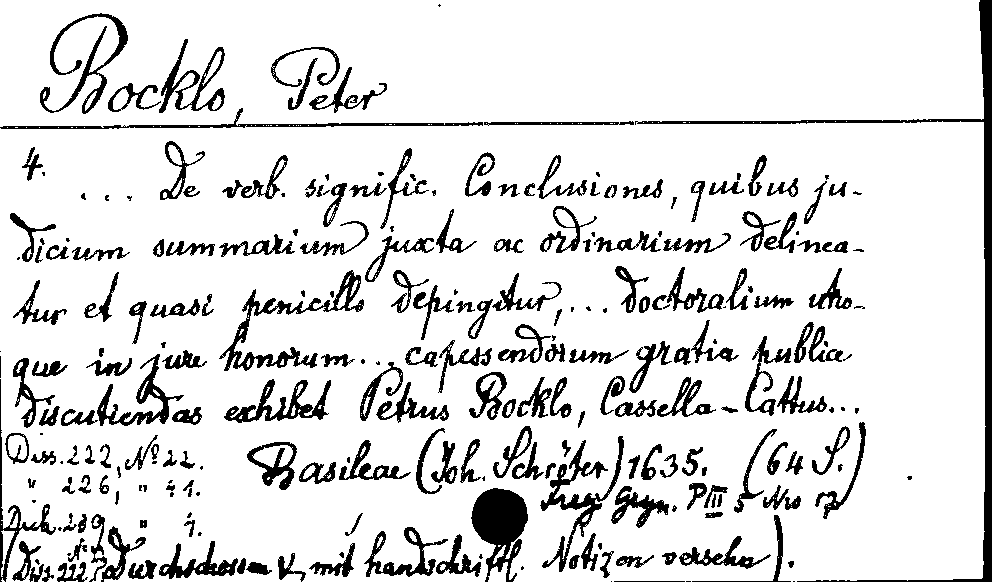 Bocklo, Peter
4. ... De verb. signific. Conclusiones, quibus ju-
dicium summarium juxta ac ordinarium delinea-
tur et quasi penicillo depingitur,... doctoralium utro-
que in jure honorum... capessendorum gratia publice
discutiendas exhibet Petrus Bocklo, Cassella-Cattus...
Diss. 222, No 22. Basileae (Joh. Schröter) 1635. (64 S.)
" 226, " 41. Gryn. P III 5 Nro
239, " 4.
Diss. 222 (Durchschossen u. mit handschriftl. Notizen versehn).